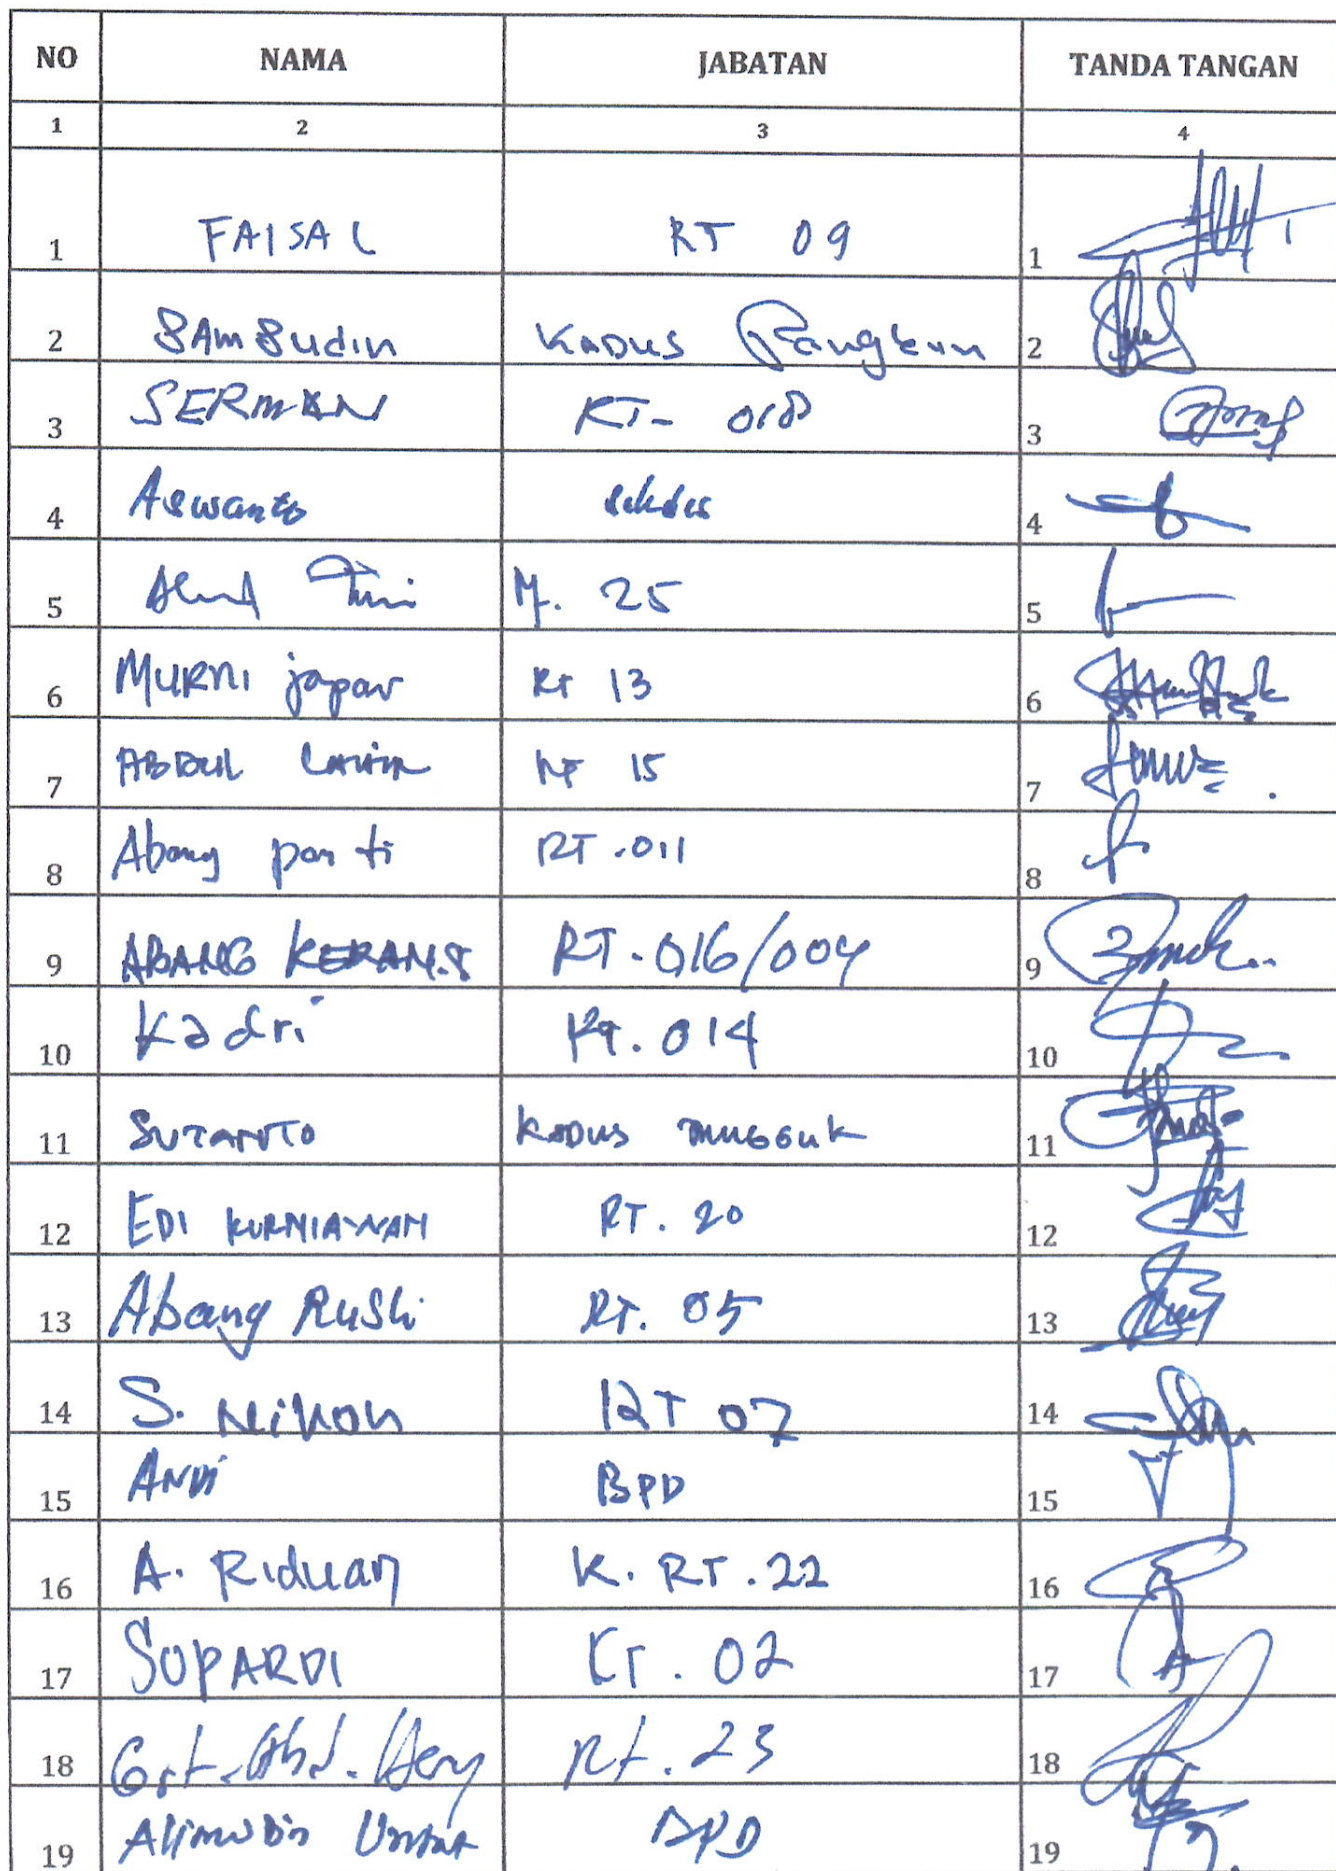 NO NAMA JABATAN TANDA TANGAN
1 2 3 4
1 FAISAL RT 09 1
2 SAMSudin KADUS 2
3 SERMAN RT- 018 3
4 Aswanto sekdes 4
5 25 5
6 MURNI japar Rt 13 6
7 ABDUL RT 15 7
8 Abang panti RT.011 8
9 ABANG RT.016/004 9
10 Kadri RT.014 10
11 SUTANTO KADUS 11
12 EDI KURNIAWAN RT. 20 12
13 Abang Rusli RT. 05 13
14 S. RT 07 14
15 ANDI BPD 15
16 A. Riduan K. RT. 22 16
17 SUPARDI RT. 02 17
18 Rt. 23 18
19 BPD 19